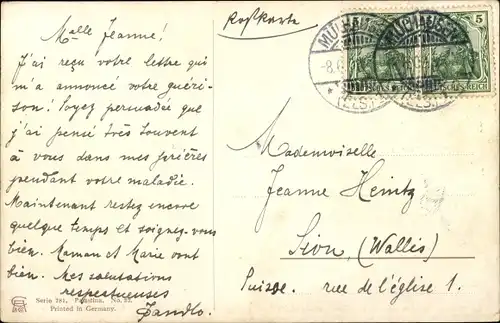 Postkarte
Mlle Jeanne!
J'ai reçu votre lettre qui
m'a annoncé votre guéri-
son! Soyez persuadée que
j'ai pensé très souvent
à vous dans mes prières
pendant votre maladie.
Maintenant restez encore
quelque temps et soignez-vous
bien. Maman et Marie vont
bien. Mes salutations
respectueuses
MÜLHAUSEN
(ELS.)
MÜLHAUSEN
(ELS.)
5
DEUTSCHES REICH
Mademoiselle
Jeanne Heintz
Sion, (Wallis)
Suisse. rue de l'église 1.
Serie 781, No. 22.
Printed in Germany.